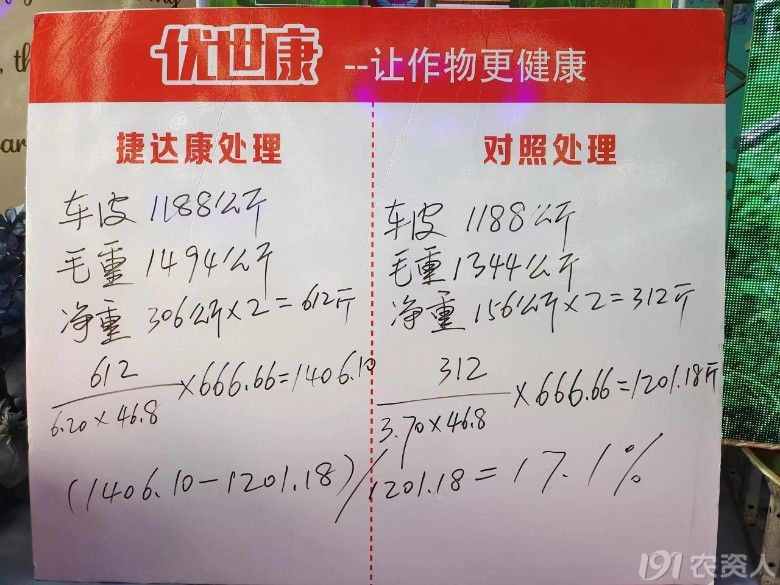 优世康 --让作物更健康
捷达康处理
车皮 1188公斤
毛重 1494公斤
净重 306公斤×2=612斤
612
6.20×46.8
×666.66=1406.10
对照处理
车皮 1188公斤
毛重 1344公斤
净重 156公斤×2=312斤
312
3.70×46.8
×666.66=1201.18斤
(1406.10-1201.18)/1201.18=17.1%
th
ar
191农资人